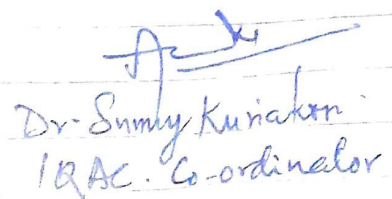 Dr. Sumy Kuriakon.
IQAC. Co-ordinator